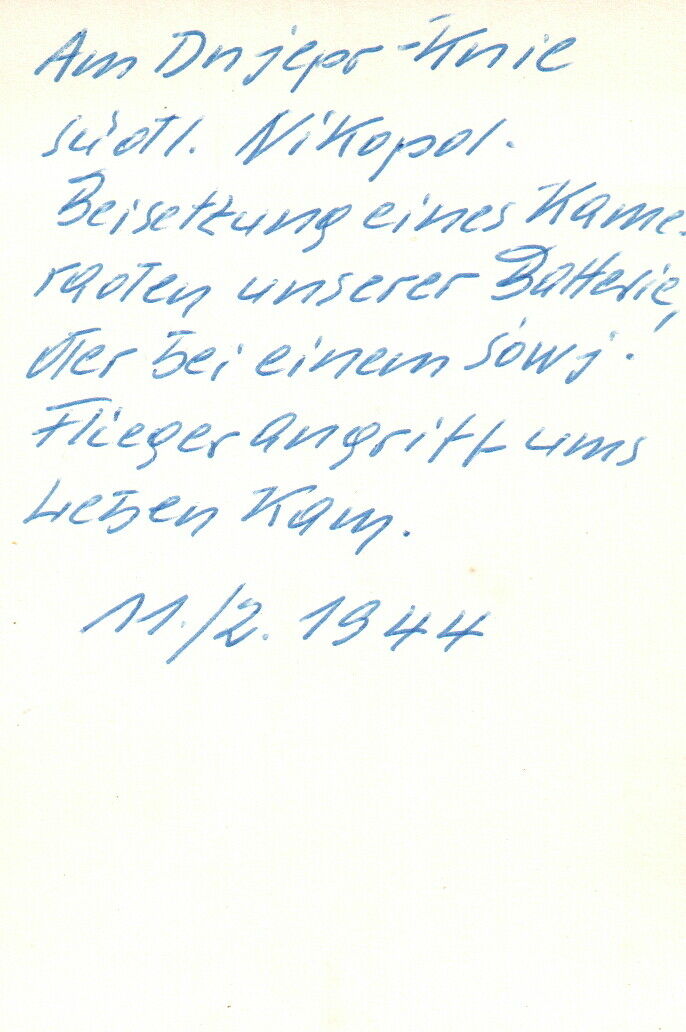 Am Dnjepr-Knie
südl. Nikopol.
Beisetzung eines Kame-
raden unserer Batterie,
der bei einem sowj.
Fliegerangriff ums
Leben kam.
11./2. 1944